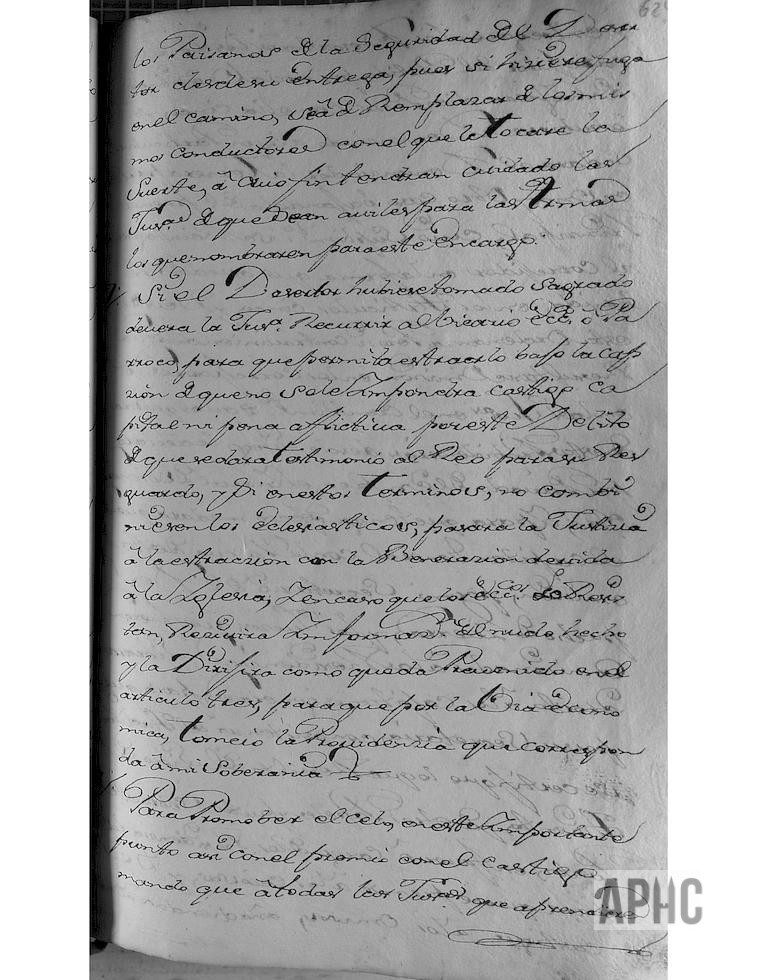 los Paisanos de la Seguridad del Deser
tor desde su entrega, pues si hiziere fuga
en el camino, será de Remplazar de los mis
mos conductores con el que le tocare la
Suerte, â cuio fin tendran cuidado las
Jusas. de que sean aviles para las Armas
los que nombraren para este encargo.
Si el Desertor hubiese tomado Sagrado
devera la Jusa. Recurrir al Vicario ecco. ô Pa
rroco, para que permita estraerlo bajo la cap
zion de que no se le Impondra castigo ca
pital ni pena aflictiva por este Delito
de que se dara testimonio al Reo para su Res
guardo, y Si en estos terminos, no combi
niesen los eclesiasticos, pasara la Justicia
â la estraczion con la Benerazion devida
â la Iglesia, I en caso que los eccos. Lo Resis
tan, Rezivira Informazn. del nudo hecho
y la Dirijira como queda Prevenido en el
articulo tres, para que por la Via econo
mica, tome io la Providenzia que correspon
da â mi Soberania
Para Promober el celo, en este Importante
punto asi con el premio con el Castigo
mando que â todas las Jusas. que aprendiere
APHC